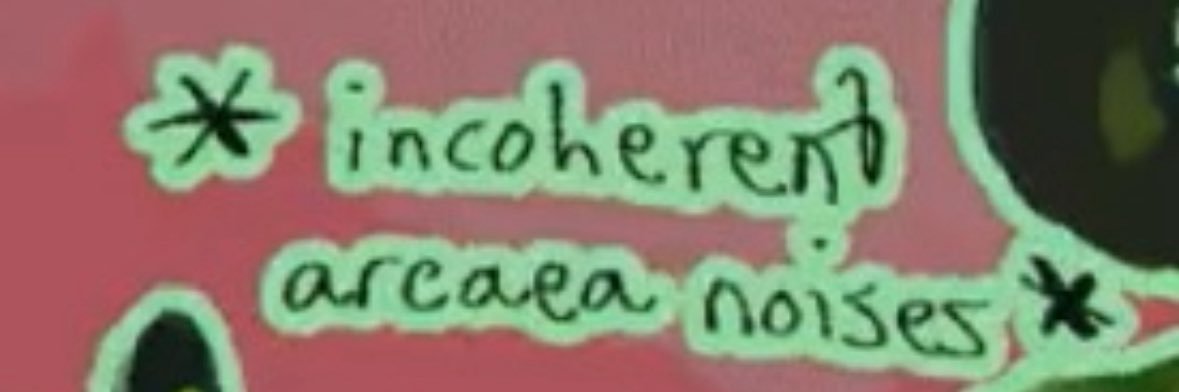 *incoherent
arcaea noises*